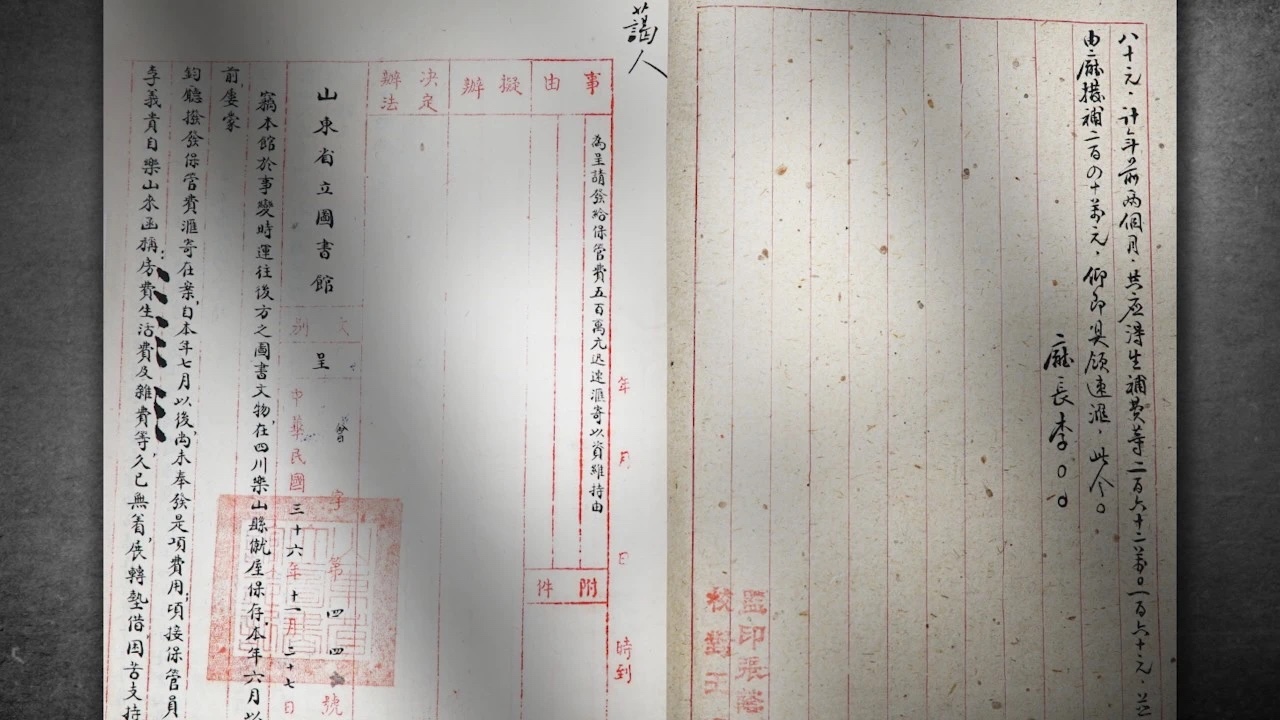 八十元．計年前兩個月．共應得生補費等二百六十二萬〇一百六十元．並
由廳撥補二百四十萬元．仰即具領速滙．此令。
廳長李〇〇
監印張
校對王
謁人
年 月 日 時到
事由
擬辦
決定辦法
附件
為呈請發給保管費五百萬元迅速滙寄以資維持由
山東省立圖書館
文別
呈
字第四四號
中華民國三十六年十一月二十七日
竊本館於事變時運往後方之圖書文物,在四川樂山縣僦屋保存,本年六月以
前,屢蒙
鈞廳撥發保管費滙寄在案,自本年七月以後,尚未奉發是項費用,項接保管員
李義貴自樂山來函稱:房費生活費及雜費等,久已無着,展轉墊借困苦支持